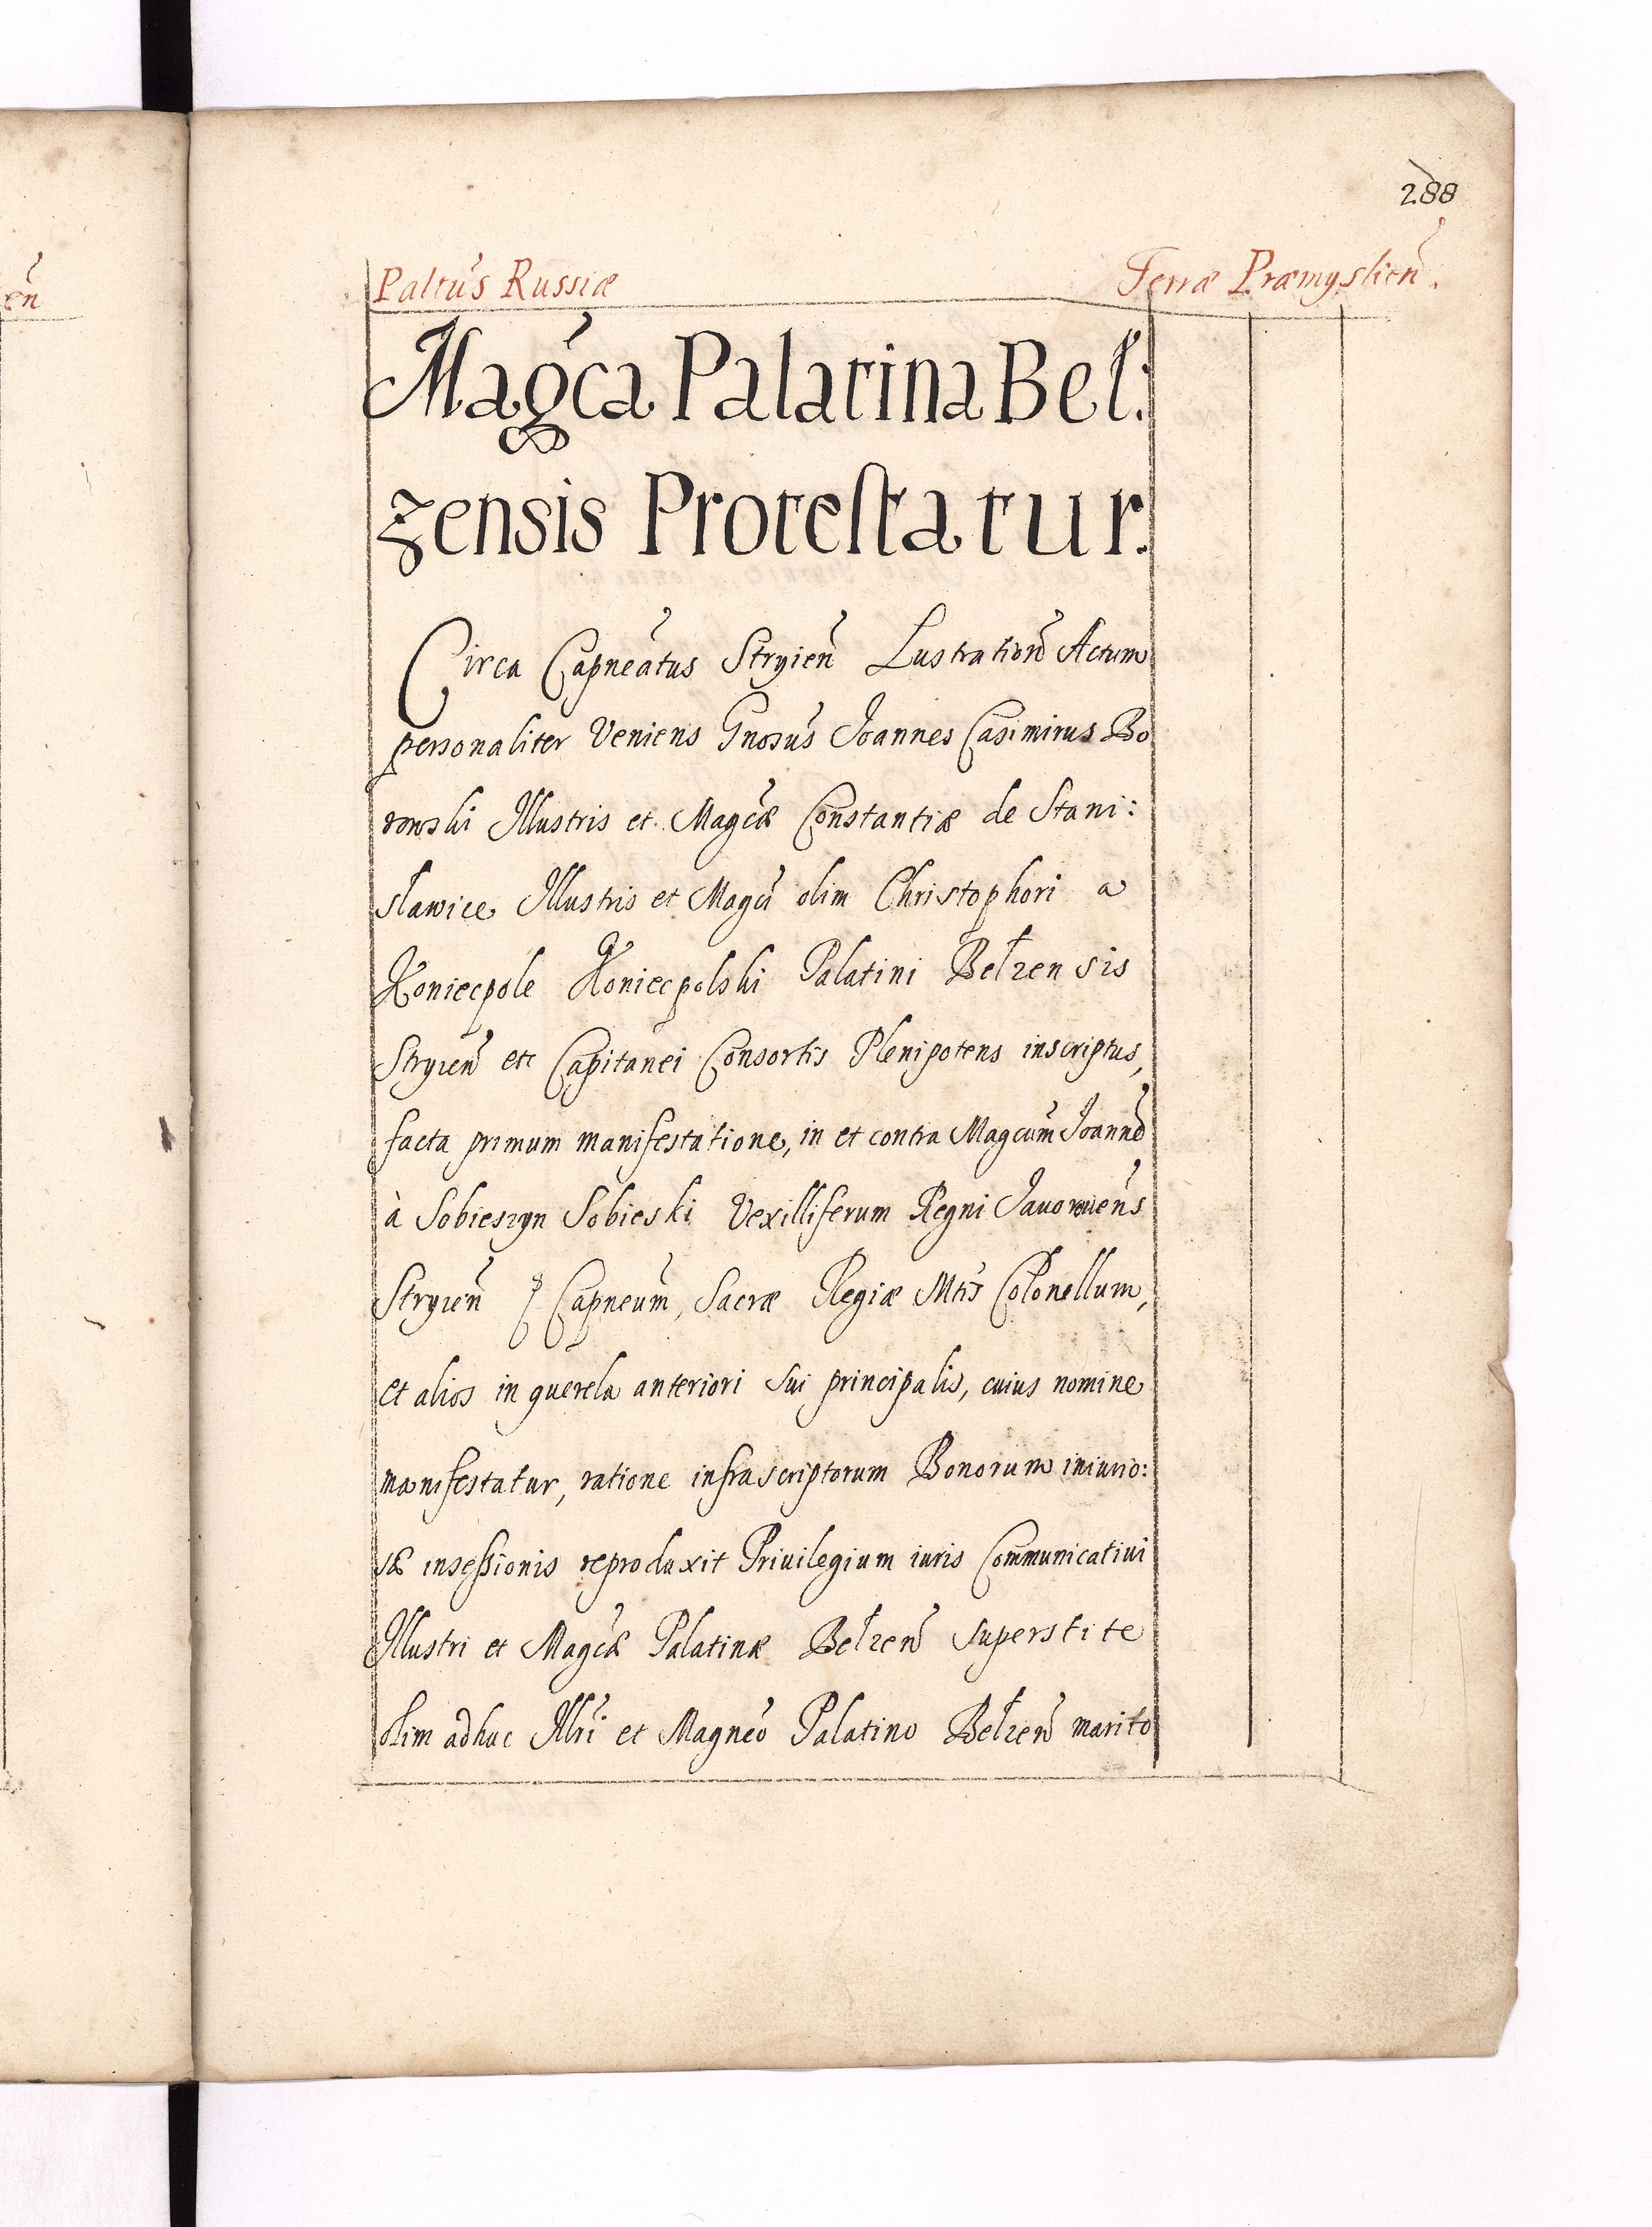 288
Paltus Russiæ Terræ Præmyslien.
Magca Palatina Bel:
zensis Protestatur.
Circa Capneatus Stryien Lustration Actum
personaliter Veniens Gnosus Joannes Casimirus Bo
rowski Illustris et Magcæ Constantiæ de Stani:
sławice Illustris et Magci olim Christophori a
Koniecpole Koniecpolski Palatini Bełzensis
Stryien etc Capitanei Consortis Plenipotens inscriptus,
facta primum manifestatione, in et contra Magcum Joannē
à Sobieszyn Sobieski Vexilliferum Regni Javorouiens
Stryien Capneum, Sacræ Regiæ Mtis Colonellum,
et alios in querela anteriori sui principalis, cuius nomine
manifestatur, ratione infrascriptorum Bonorum iniurio:
sæ insessionis reproduxit Priuilegium iuris Communicatiui
Illustri et Magcæ Palatinæ Bełzen superstite
olim adhuc Illri et Magneo Palatino Bełzen marito